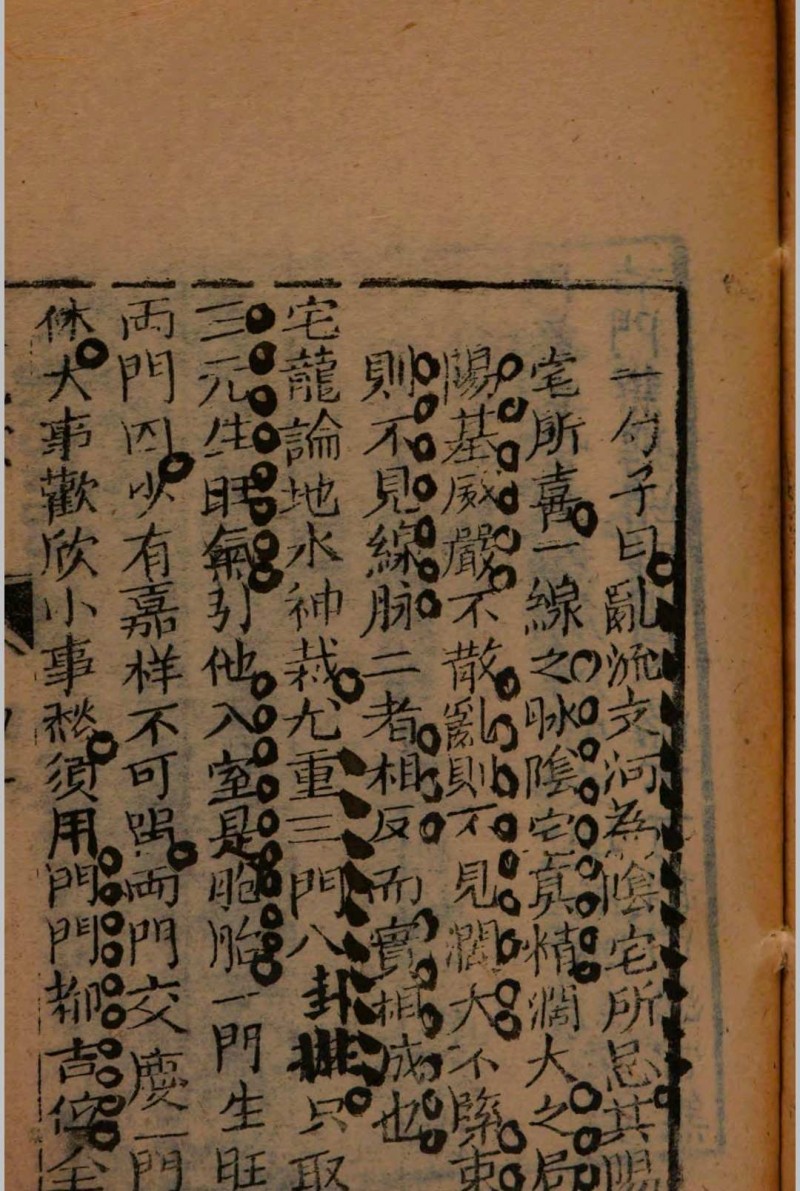 一勺子曰亂流交河為陰宅所忌其陽
宅所喜一線之脉陰宅真精濶大之局
陽基威嚴不散亂則不見濶大不緊束
則不見線脉二者相反而實相成也
宅龍論地水神裁尤重三門八卦排只取
三元生旺氣引他入室是胞胎一門生旺
両門囚少有嘉样不可留両門交慶一門
休大事歡欣小事愁須用門門都吉位全